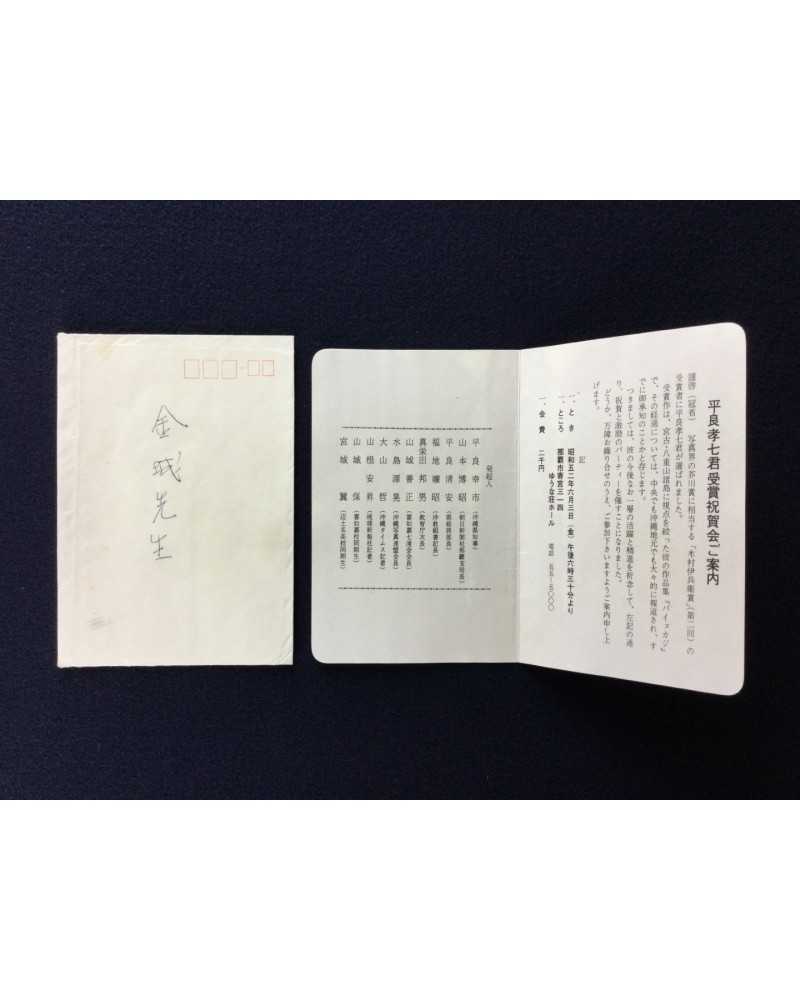 金城先生
平良孝七君受賞祝賀会ご案内
謹啓(冠省) 写真界の芥川賞に相当する「木村伊兵衛賞」(第二回)の
受賞者に平良孝七君が選ばれました。
受賞作は、宮古・八重山諸島に視点を絞った彼の作品集『パイヌカジ』
で、その経過については、中央でも沖縄地元でも大々的に報道され、す
でに御承知のことかと存じます。
つきましては、彼の今後なお一層の活躍と精進を祈念して、左記の通
り、祝賀と激励のパーティーを催すことになりました。
どうか、万障お繰り合せのうえ、ご参加下さいますようご案内申し上
げます。
記
一、とき 昭和五二年六月三日(金)午後六時三十分より
一、ところ 那覇市寄宮三一四
ゆうな荘ホール 電話 五五-五〇〇〇
一、会費 二千円
発起人
平良幸市(沖縄県知事)
山本博昭(朝日新聞社那覇支局長)
平良清安(県総務部長)
福地曠昭(沖教組書記長)
真栄田邦男(教育庁次長)
山城善正(喜如嘉七滝会会長)
水島源晃(沖縄写真連盟会長)
大山哲(沖縄タイムス記者)
山根安昇(琉球新報社記者)
山城保(喜如嘉校同期生)
宮城翼(辺土名高校同期生)